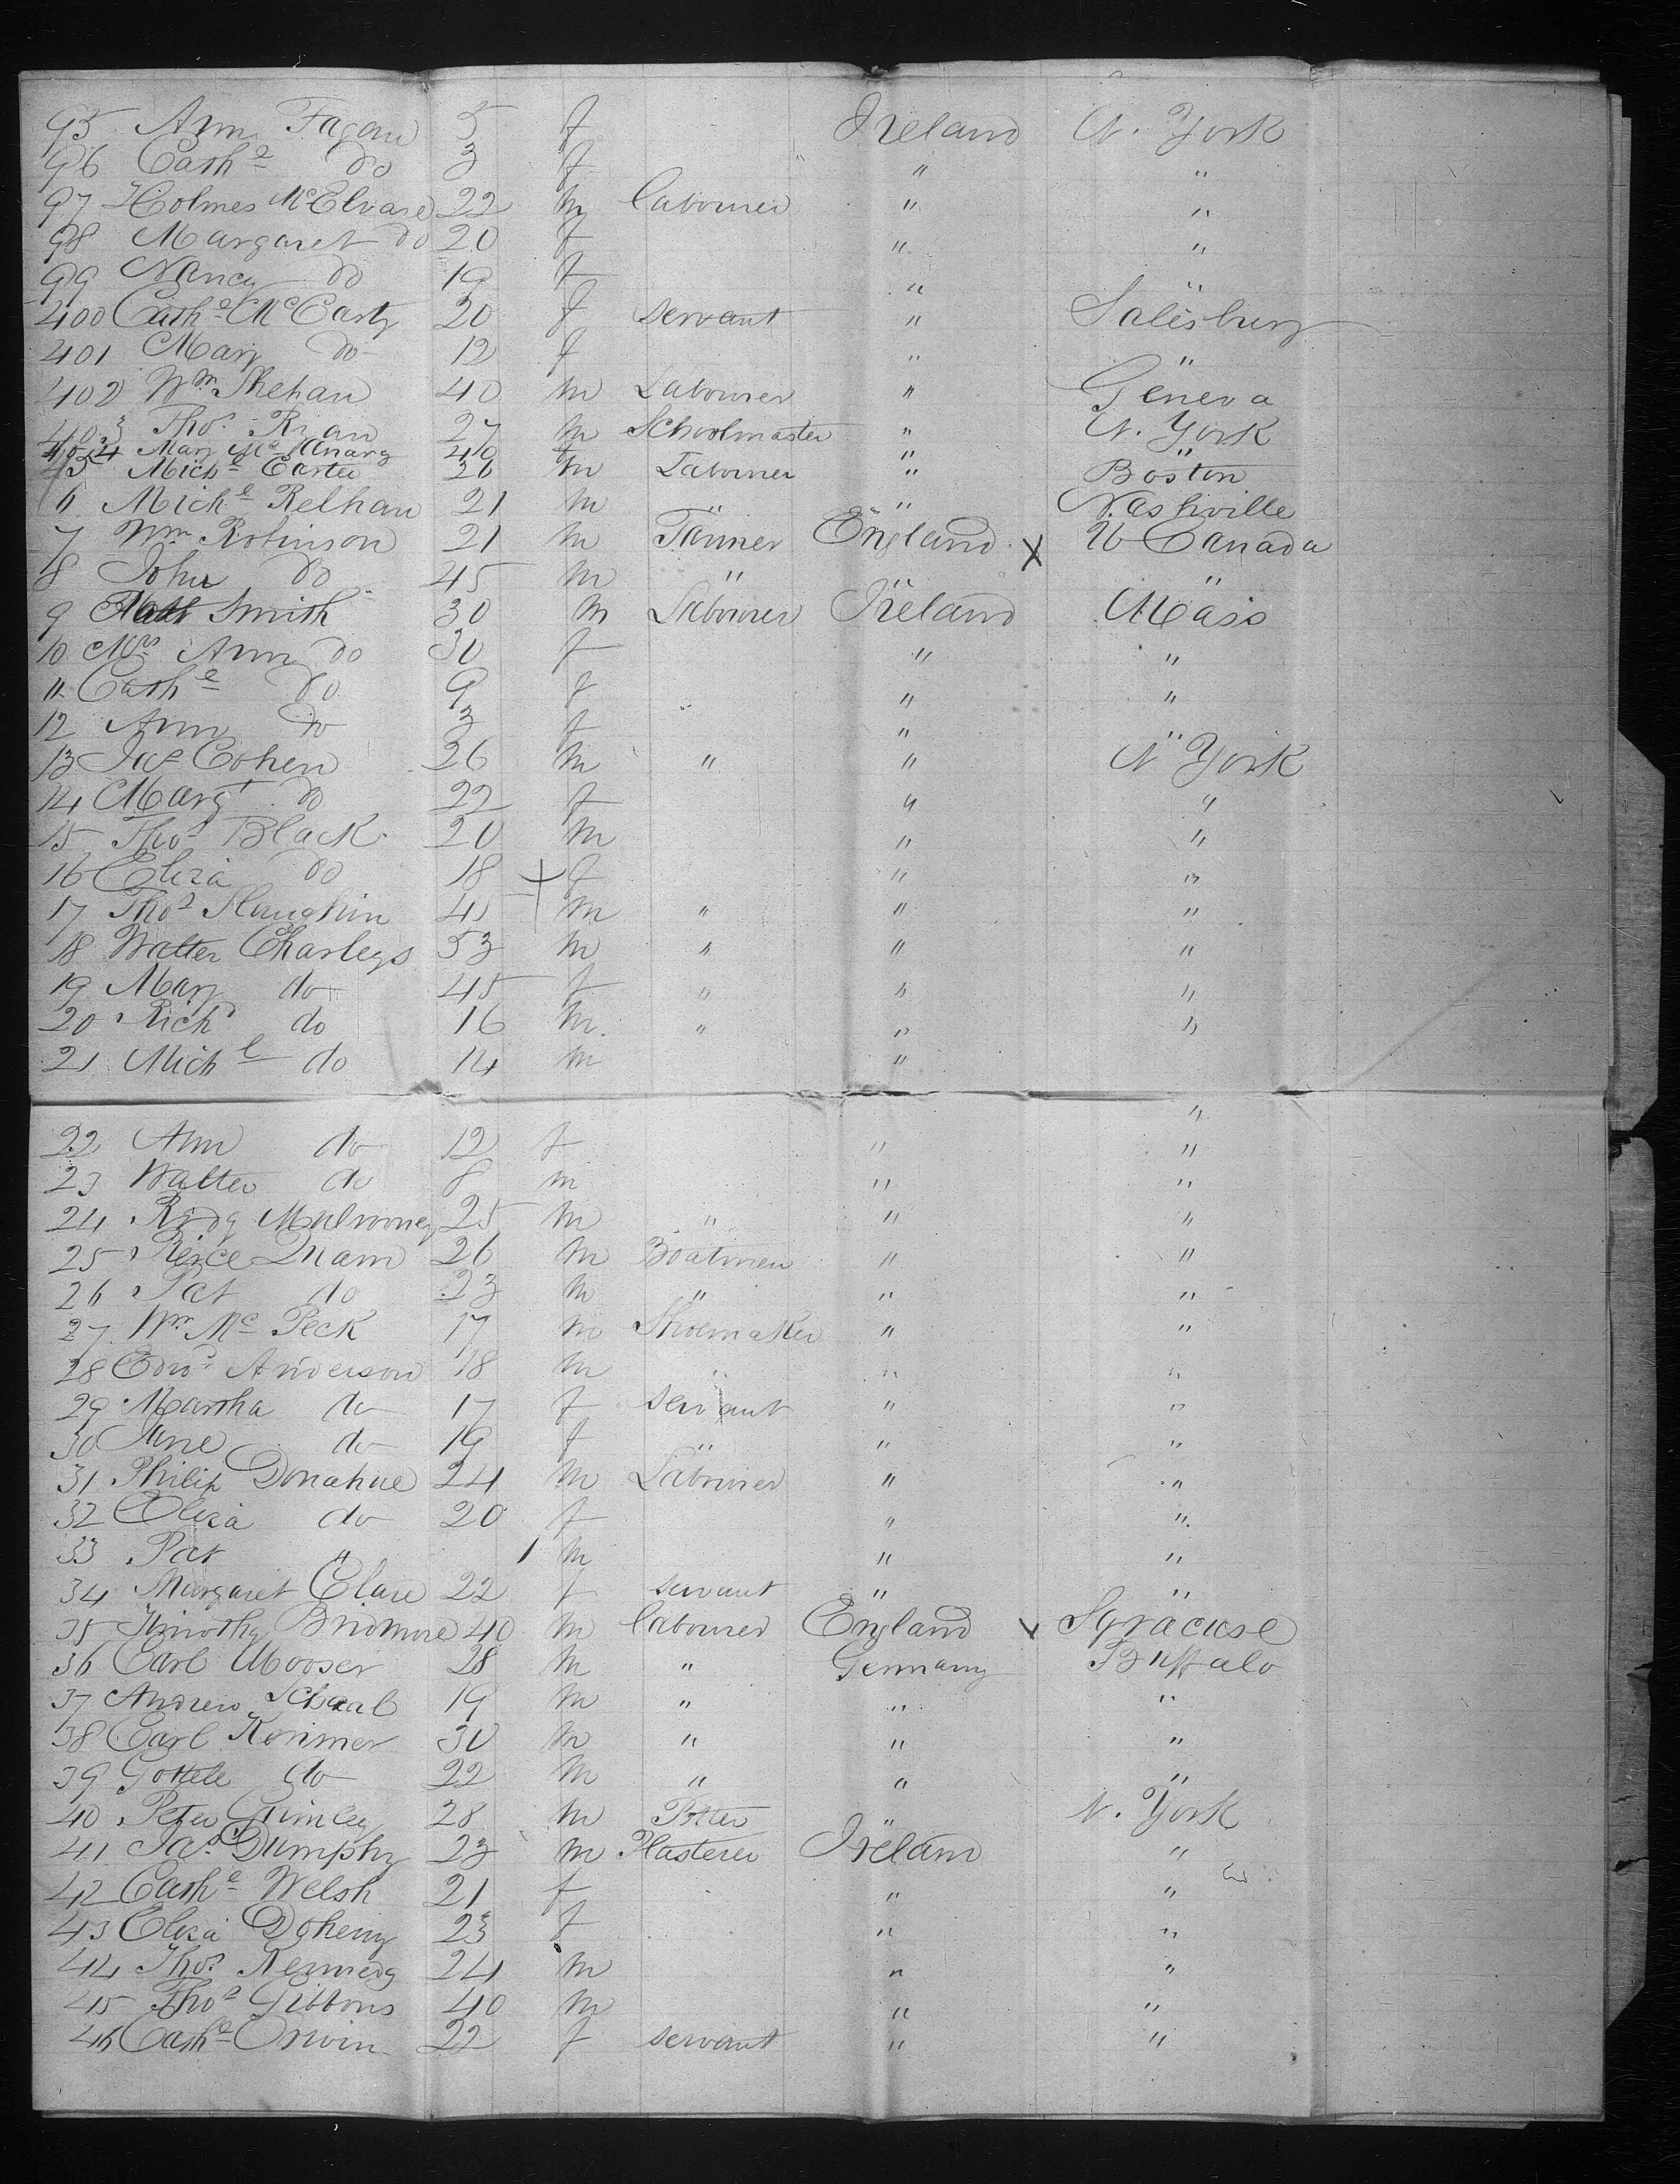 95 Ann Fagan 5 f Ireland N. York
96 Cathe do 3 f " "
97 Holmes McElvare 22 m labourer " "
98 Margaret do 20 f " "
99 Nancy do 19 f " "
400 Cathe McCarty 20 f servant " Salisbury
401 Mary do 12 f " "
402 Wm Shehan 40 m Labourer " Geneva
403 Thos Rian 27 m Schoolmaster " N. York
404 Mary Mc 40 f " "
45 Michl Carter 26 m Labourer " Boston
6 Michl Relhan 21 m " Nashville
7 Wm Robinson 21 m Tanner England X U Canada
8 John do 45 m " " "
9 Smith 30 m Labourer Ireland Mass
10 Mrs Ann do 30 f " "
11 Cathe do 9 f " "
12 Ann do 3 f " "
13 Jas Cohen 26 m " " N York
14 Margt do 22 f " "
15 Thos Black 20 m " "
16 Eliza do 18 f " "
17 Thos Slaughin 45 m " " "
18 Walter Charleys 53 m " " "
19 Mary do 45 f " " "
20 Richd do 16 m " " "
21 Michl do 14 m " "
22 Ann do 12 f " "
23 Walter do 8 m " "
24 Rody Mulrooney 25 m " " "
25 Peirce Quam 26 m Boatmen " "
26 Pat do 23 m " " "
27 Wm Mc Peck 17 m Shoemaker " "
28 Edwd Anderson 18 m " " "
29 Martha do 17 f servant " "
30 Jane do 19 f " " "
31 Philip Donahue 24 m Labourer " "
32 Eliza do 20 f " "
33 Pat " 1 m " "
34 Margaret Clare 22 f servant " "
35 Timothy Bridmore 40 m labourer England x Syracuse
36 Carl Mooser 28 m " Germany Buffalo
37 Andrew Schaal 19 m " " "
38 Carl Korimer 30 m " " "
39 Gottele do 22 m " " "
40 Peter Gimley 28 m Potter " N. York
41 Jas Dumphy 23 m Plasterer Ireland "
42 Cathe Welsh 21 f " "
43 Eliza Doheny 23 f " "
44 Thos Kennedy 24 m " "
45 Thos Gibbons 40 m " "
46 Cathe Orwin 22 f servant " "